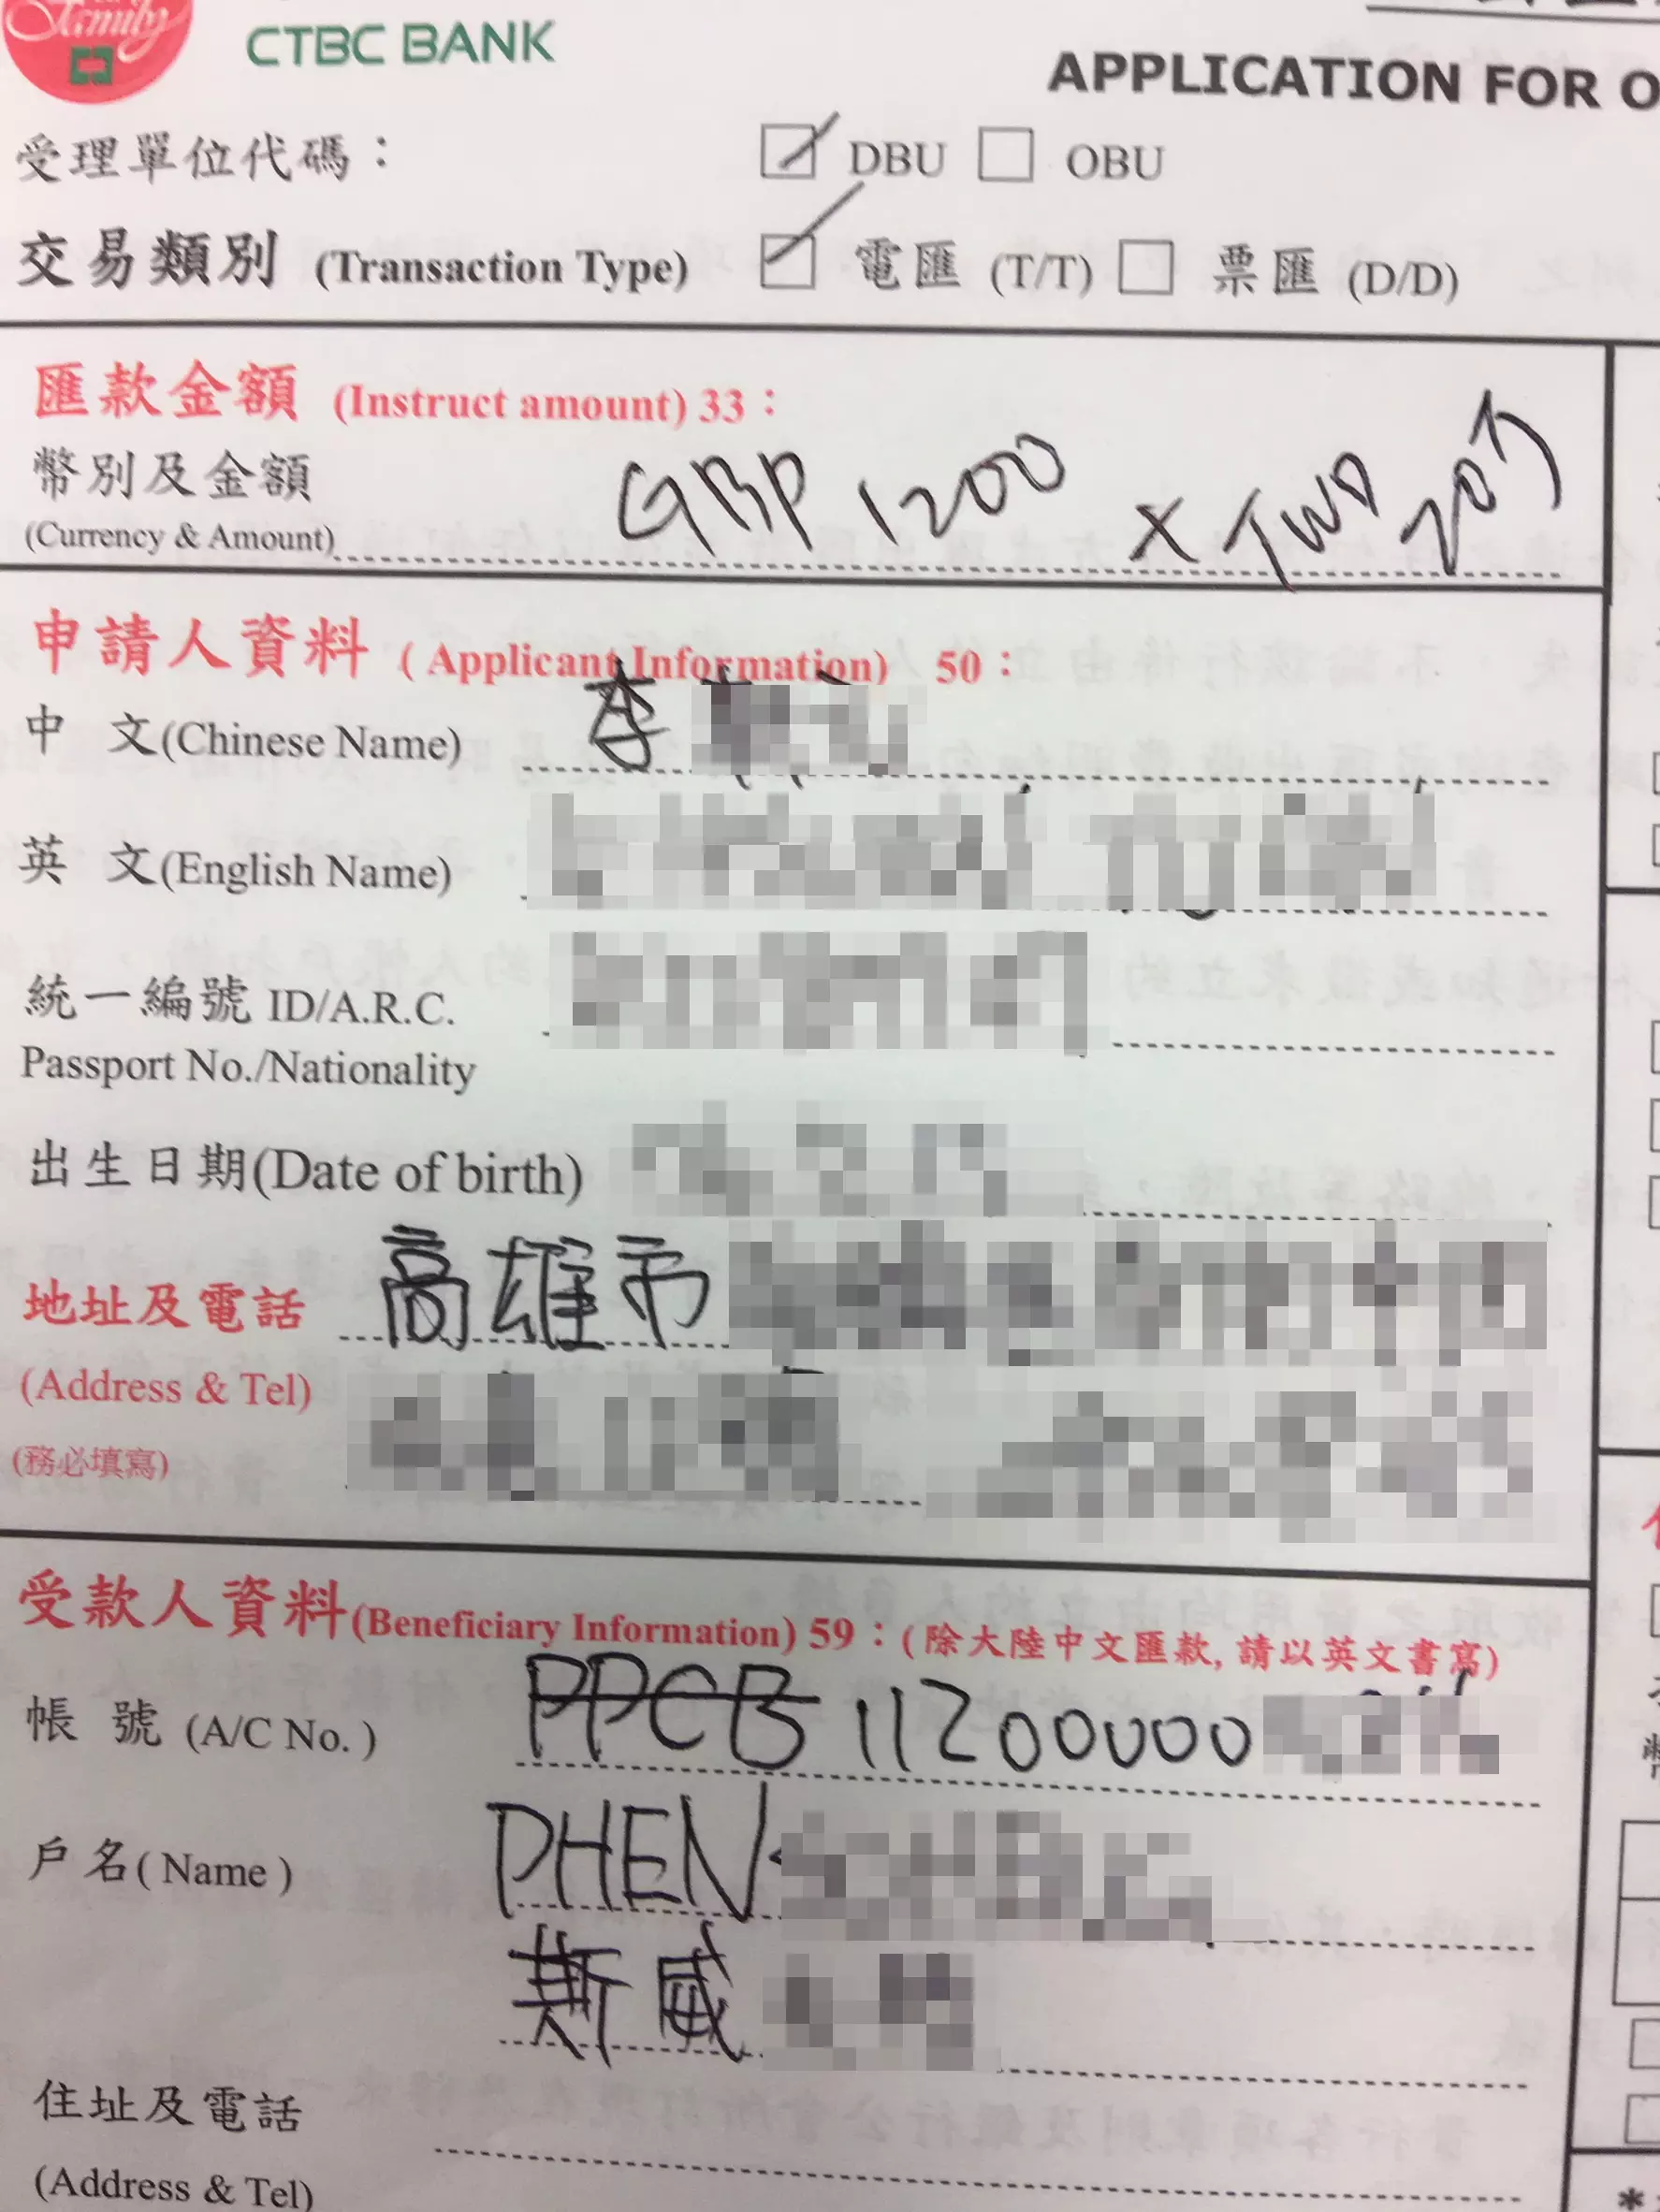 Family
CTBC BANK
APPLICATION FOR O
受理單位代碼：
DBU OBU
交易類別 (Transaction Type) 電匯 (T/T) 票匯 (D/D)
匯款金額 (Instruct amount) 33：
幣別及金額
(Currency & Amount) GBP 1200 X TWD
申請人資料 ( Applicant Information) 50：
中 文(Chinese Name) 李
英 文(English Name)
統一編號 ID/A.R.C.
Passport No./Nationality
出生日期(Date of birth)
地址及電話 高雄市
(Address & Tel)
(務必填寫)
受款人資料(Beneficiary Information) 59：(除大陸中文匯款, 請以英文書寫)
帳 號 (A/C No. ) PPCB 11200000
戶名( Name ) PHEN
斯威
住址及電話
(Address & Tel)